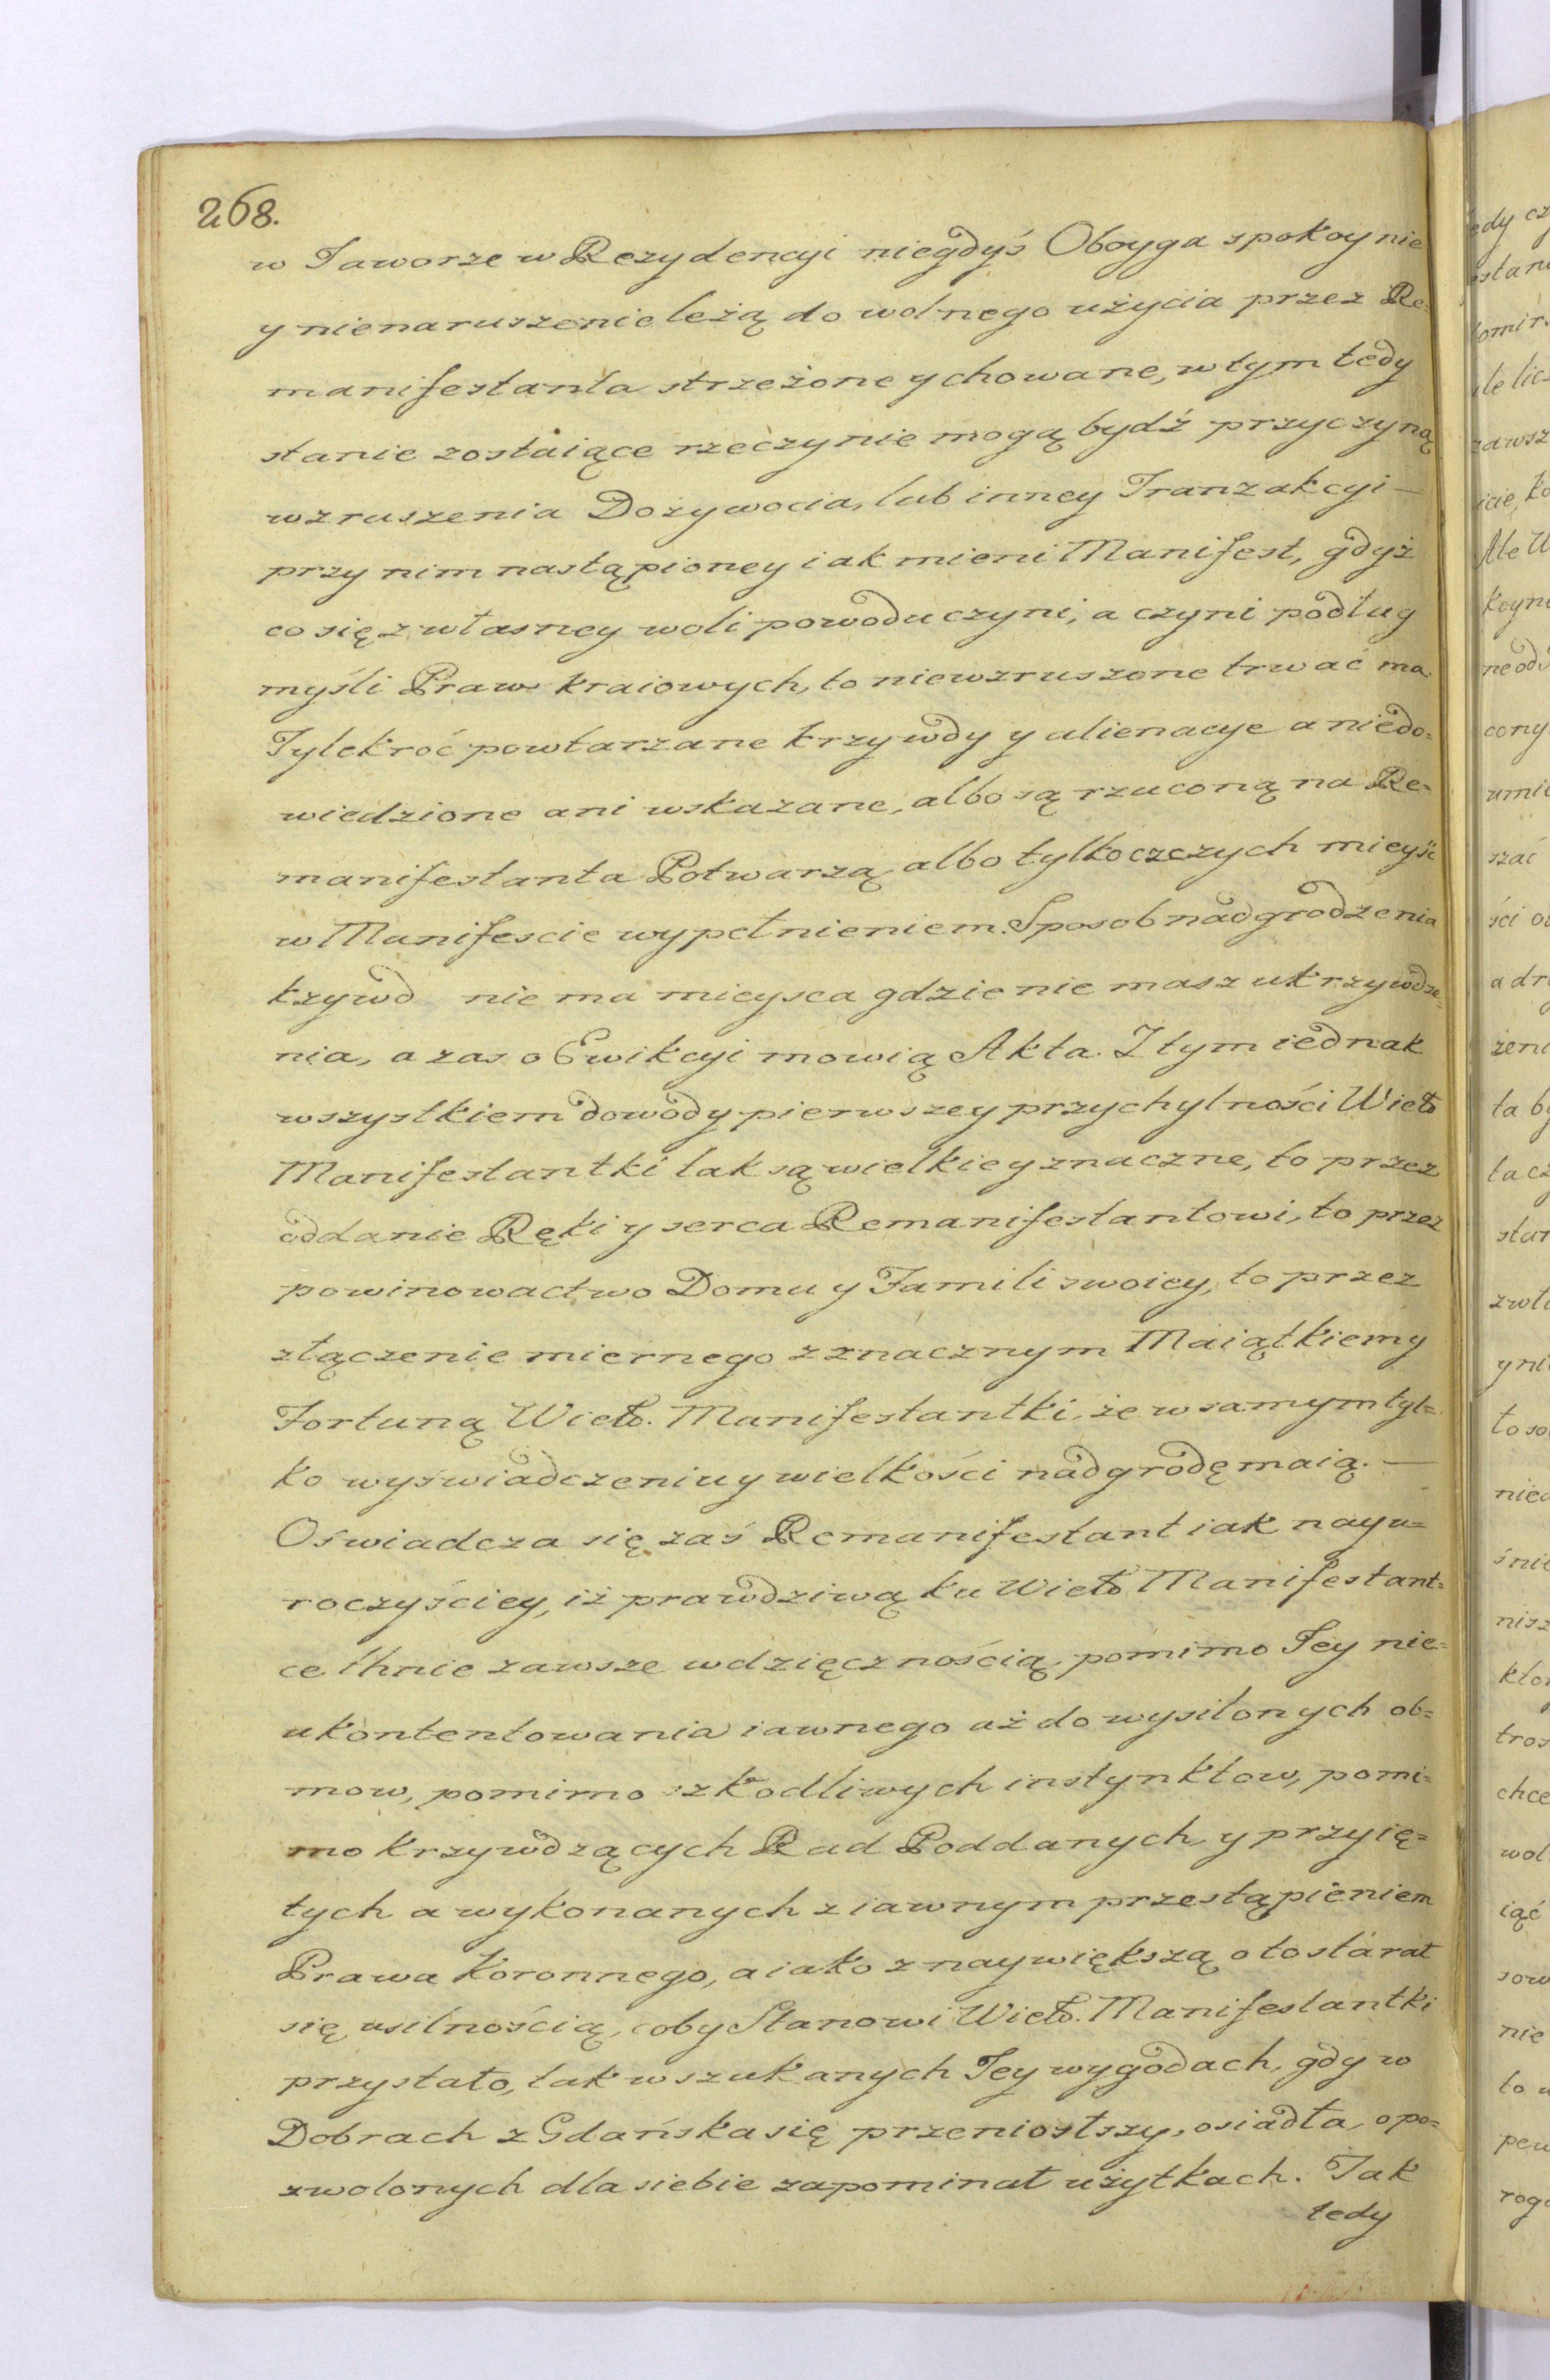 268.
w Jaworze w Rezydencyi niegdyś Oboyga spokoynie
y nienaruszenie leżą do wolnego użycia przez Re-
manifestanta strzeżone y chowane, w tym tedy
stanie zostaiące rzeczy nie mogą bydź przyczyną
wzruszenia Dożywocia, lub inney Tranzakcyi —
przy nim nastąpioney iak mieni Manifest, gdyż
co się z własney woli powodu czyni, a czyni podług
myśli Praw kraiowych, to niewzruszone trwać ma.
Tylekroć powtarzane krzywdy y alienacye a niedo=
wiedzione ani wskazane, albo są rzuconą na Re-
manifestanta Potwarzą albo tylko czczych mieysc
w Manifescie wypełnieniem. Sposob nadgrodzenia
kzywd nie ma mieysca gdzie nie masz ukrzywdze=
nia, a zas o Ewikcyi mowią Akta. Z tym iednak
wszystkiem dowody pierwszey przychylności Wielo
Manifestantki tak są wielkie y znaczne, to przez
oddanie Ręki y serca Remanifestantowi, to przez
powinowactwo Domu y Famili swoiey, to przez
złączenie miernego z znacznym Maiątkiem y
Fortuną Wielo. Manifestantki, że w samym tyl=
ko wyświadczeniu y wielkości nadgrodę maią. —
Oswiadcza się zaś Remanifestant iak nayu=
roczyściey, iż prawdziwą ku Wielo Manifestant=
ce thnie zawsze wdzięcznością, pomimo Jey nie=
ukontentowania iawnego aż do wysilonych ob=
mow, pomimo szkodliwych instynktow, pomi=
mo krzywdzących Rad Poddanych, y przyię=
tych a wykonanych z iawnym przestąpieniem
Prawa Koronnego, a iako z naywiększą o to starał
się usilnością, coby Stanowi Wielo. Manifestantki
przystało, tak w szukanych Jey wygodach, gdy w
Dobrach z Gdańska się przeniosłszy, osiadła, o po=
zwolonych dla siebie zapominał użytkach. Tak
tedy